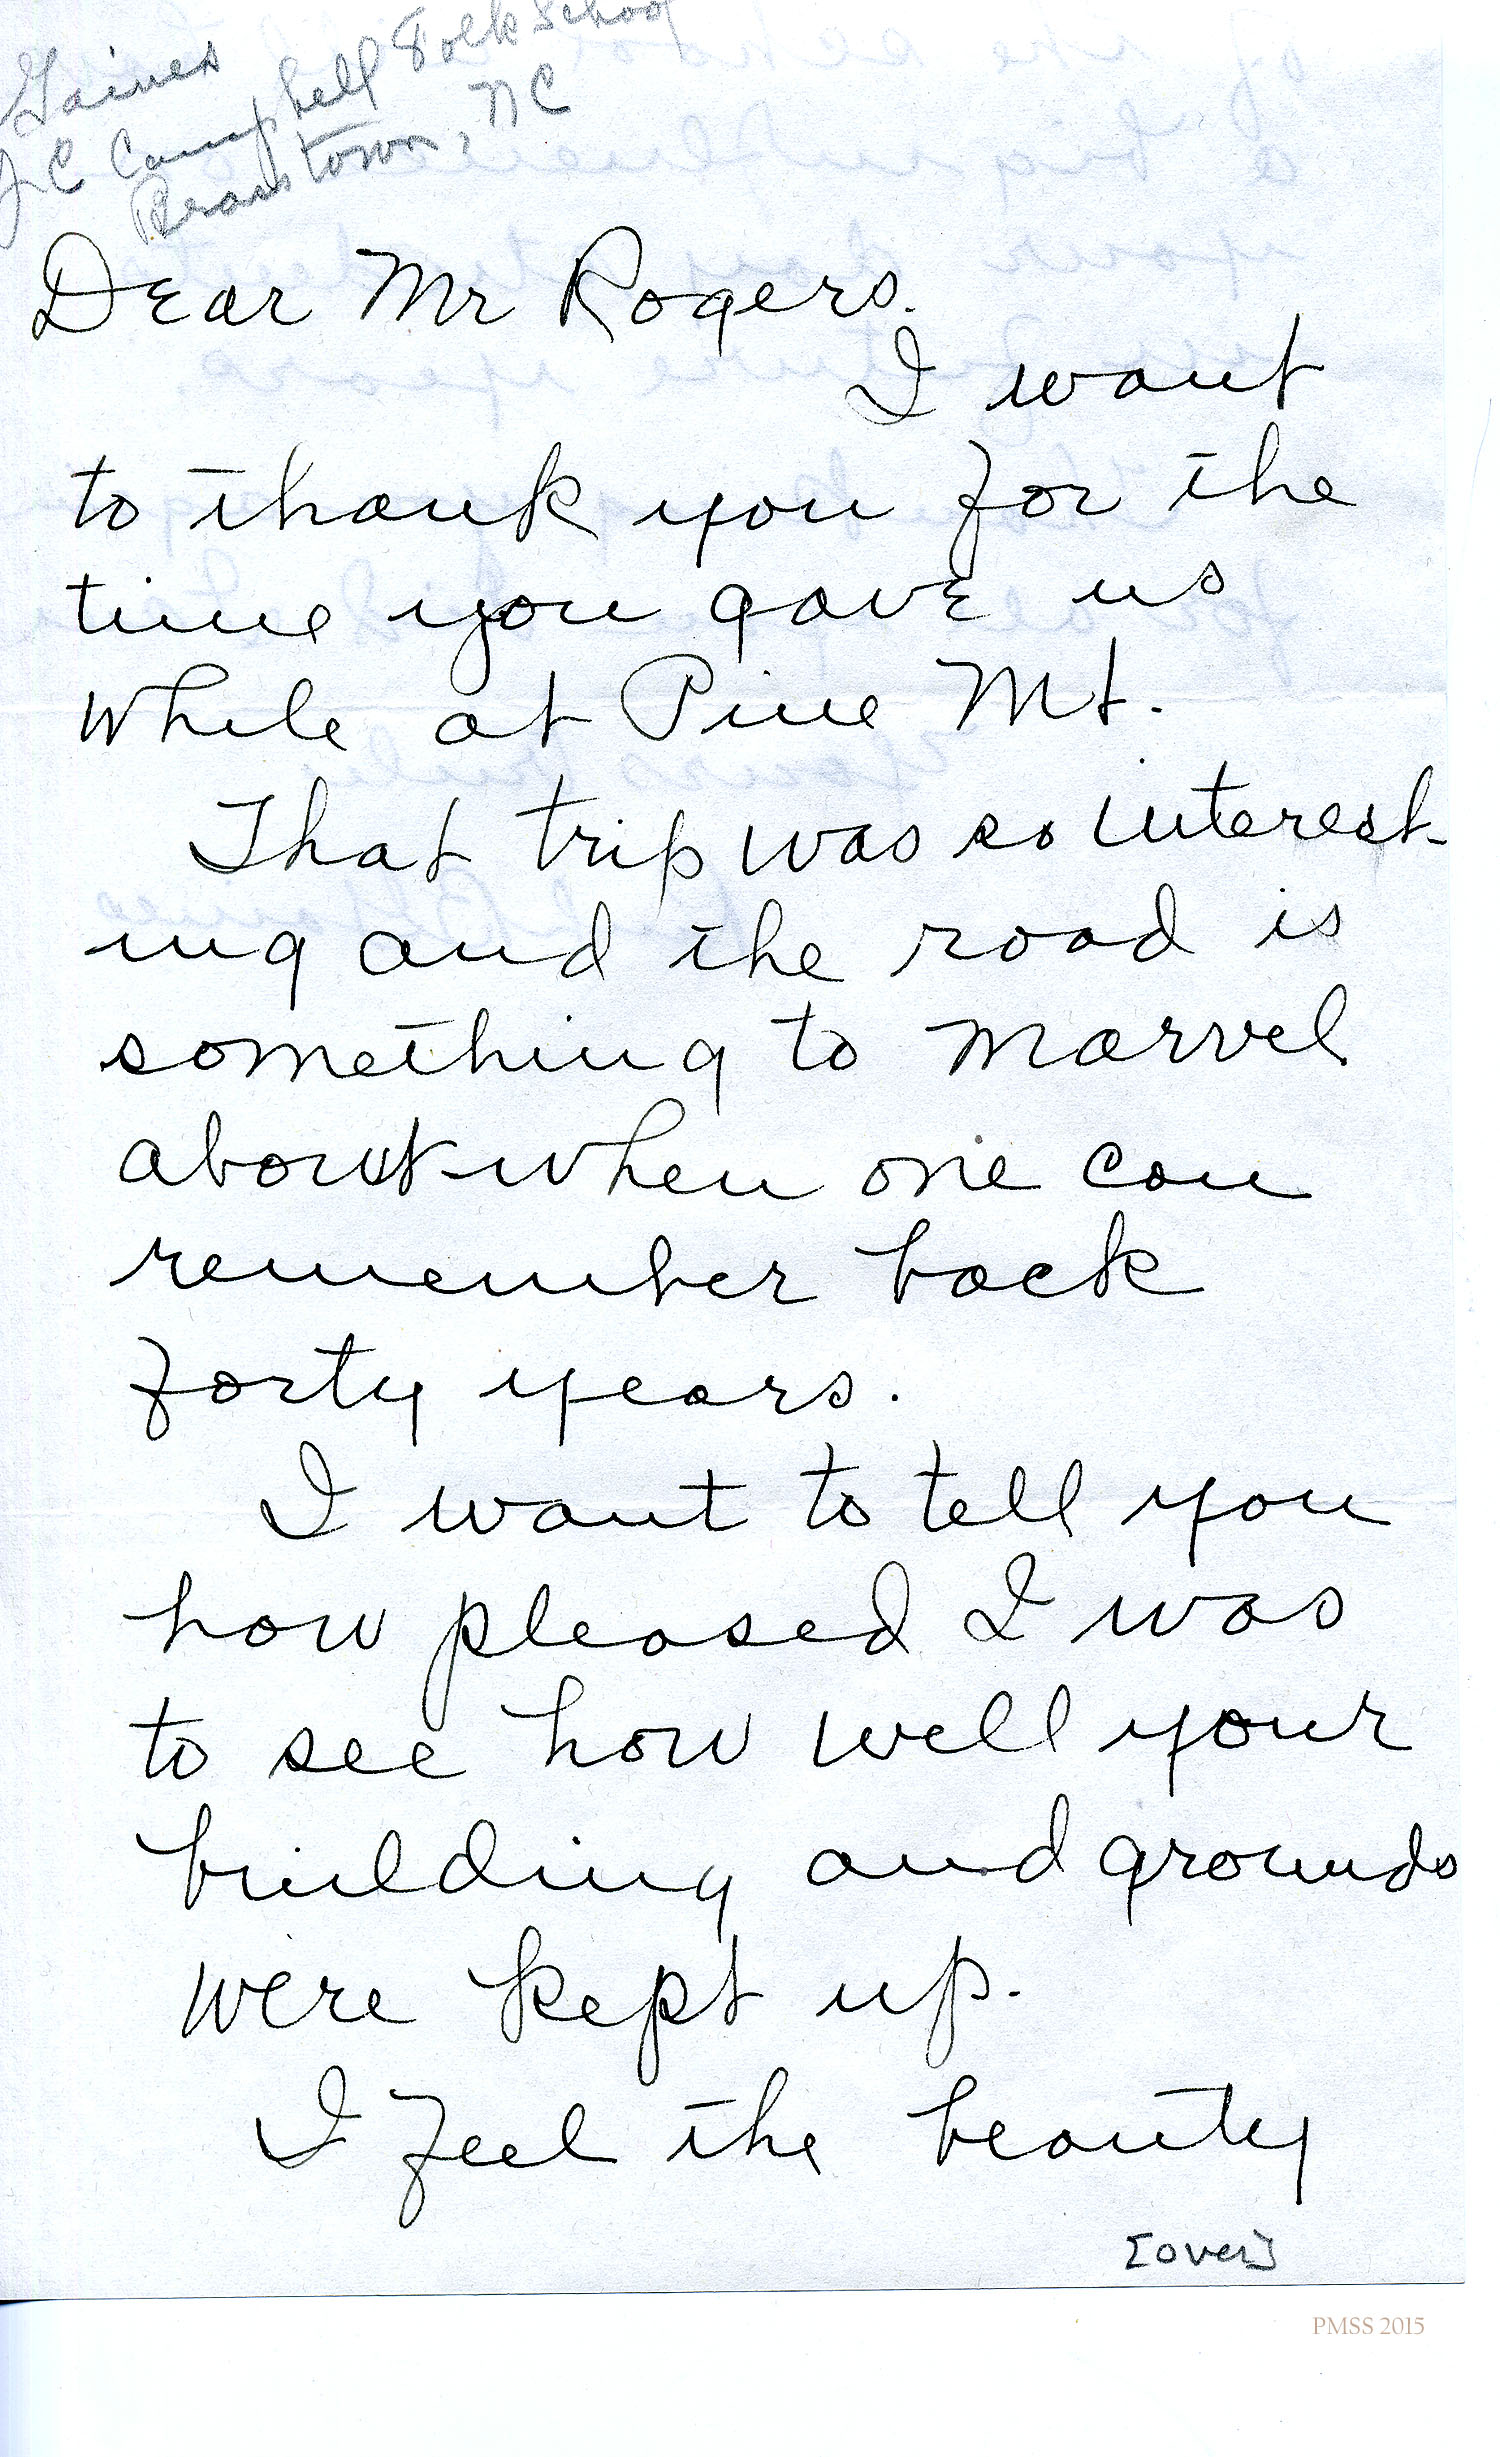 Gaines
J C Campbell Folk School
Brasstown, NC
Dear Mr Rogers.
I want
to thank you for the
time you gave us
while at Pine Mt.
That trip was so interest-
ing and the road is
something to marvel
about when one can
remember back
forty years.
I want to tell you
how pleased I was
to see how well your
building and grounds
were kept up.
I feel the beauty
[over]
PMSS 2015